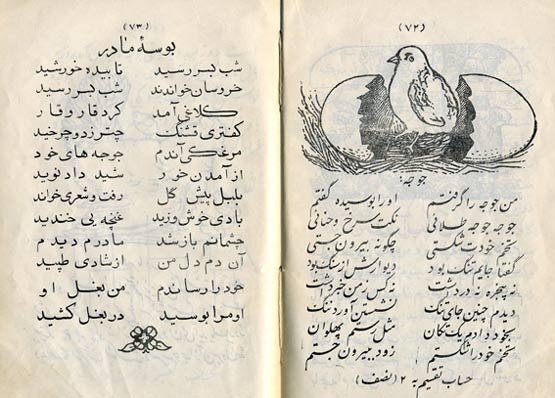 (۷۲)
جوجه:
من جوجه را گرفتم او را بوسیده گفتم
جوجه جوجه طلائی نکت سرخ و حنائی
تخم خودت شکستی چگونه بیرون جستی
گفتا جایم تنگ بود دیوارش از سنگ بود
نه پنجره نه در داشت نه کس زمن خبر داشت
دیدم چنین جای تنگ نشستن آورد ننگ
بخود دادم یک تکان مثل رستم پهلوان
تخم خود را شکستم زود بیرون جستم
حساب تقسیم به ۲ (نصف)
(۷۳)
بوسهٔ مادر
شب بسر رسید تابیده خورشید
خروسان خواندند شب بسر رسید
کلاغی آمد کرد قار و قار
کفتری قشنگ چتر زد و چرخید
مرغکی آندم جوجه های خود
از آمدن خور شید داد نوید
بلبل پیش گل رفت و شعری خواند
بادی خوش وزید غنچه یی خندید
چشمانم باز شد مادرم دیدم
آن دم دل من از شادی طپید
خود را رساندم من بغل او
او مرا بوسید در بغل کشید